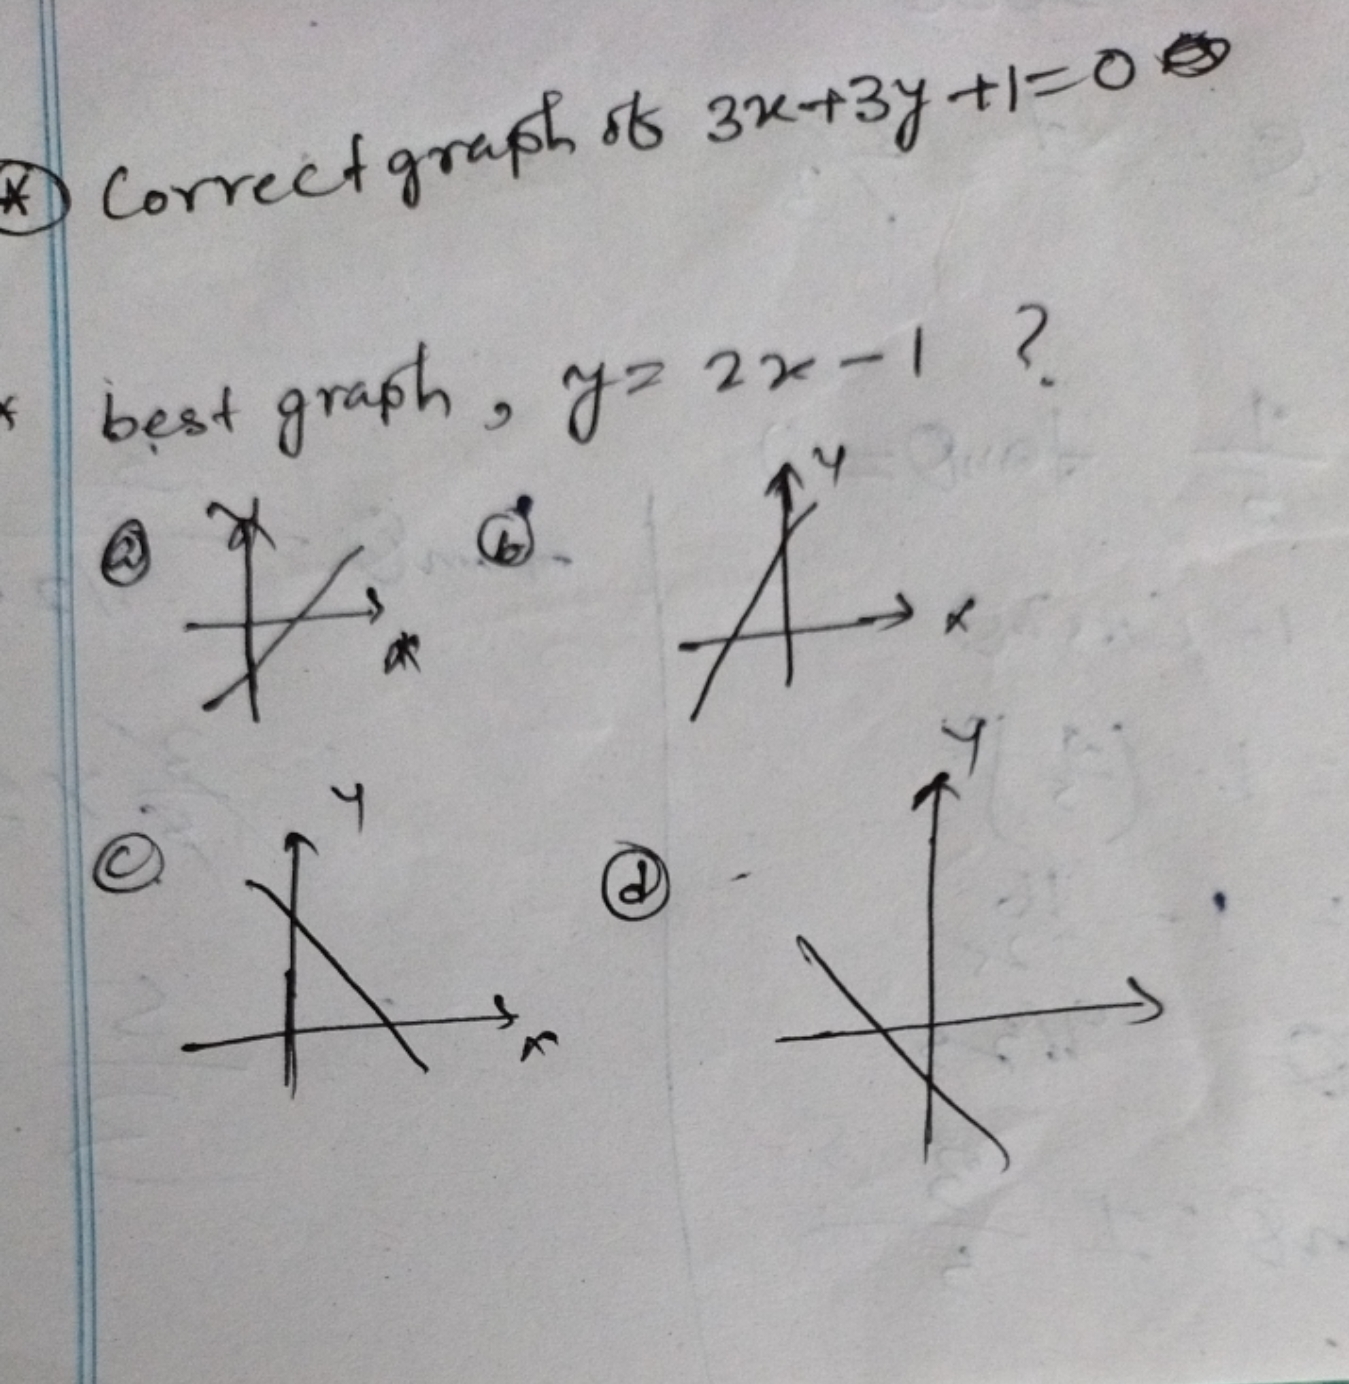 * Correct graph of 3x+3y+1=0
* best graph, y= 2x-1 ?
a y b y
x
y y
c d
x